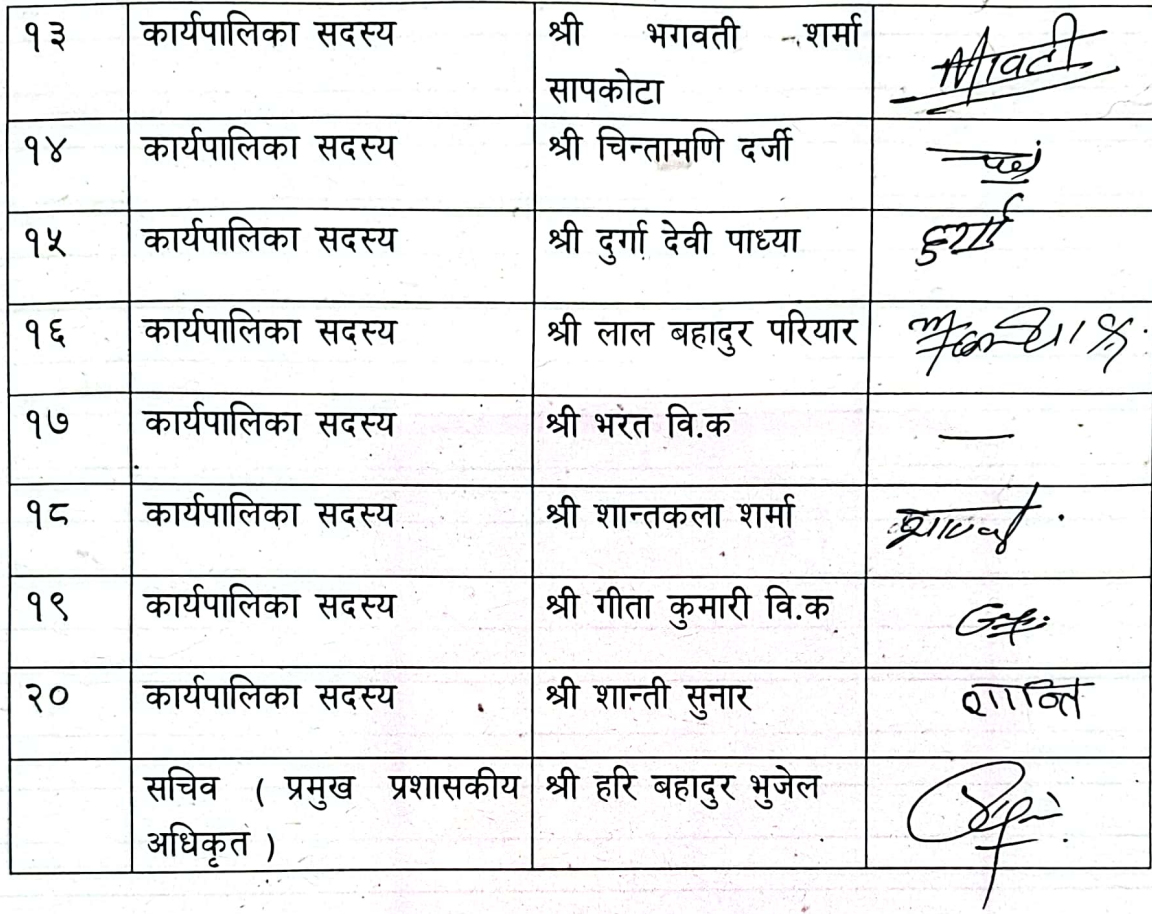 १३ कार्यपालिका सदस्य श्री भगवती शर्मा
सापकोटा
१४ कार्यपालिका सदस्य श्री चिन्तामणि दर्जी
१५ कार्यपालिका सदस्य श्री दुर्गा देवी पाध्या दुर्गा
१६ कार्यपालिका सदस्य श्री लाल बहादुर परियार
१७ कार्यपालिका सदस्य श्री भरत वि.क —
१८ कार्यपालिका सदस्य श्री शान्तकला शर्मा
१९ कार्यपालिका सदस्य श्री गीता कुमारी वि.क
२० कार्यपालिका सदस्य श्री शान्ती सुनार शान्ति
सचिव ( प्रमुख प्रशासकीय श्री हरि बहादुर भुजेल
अधिकृत )